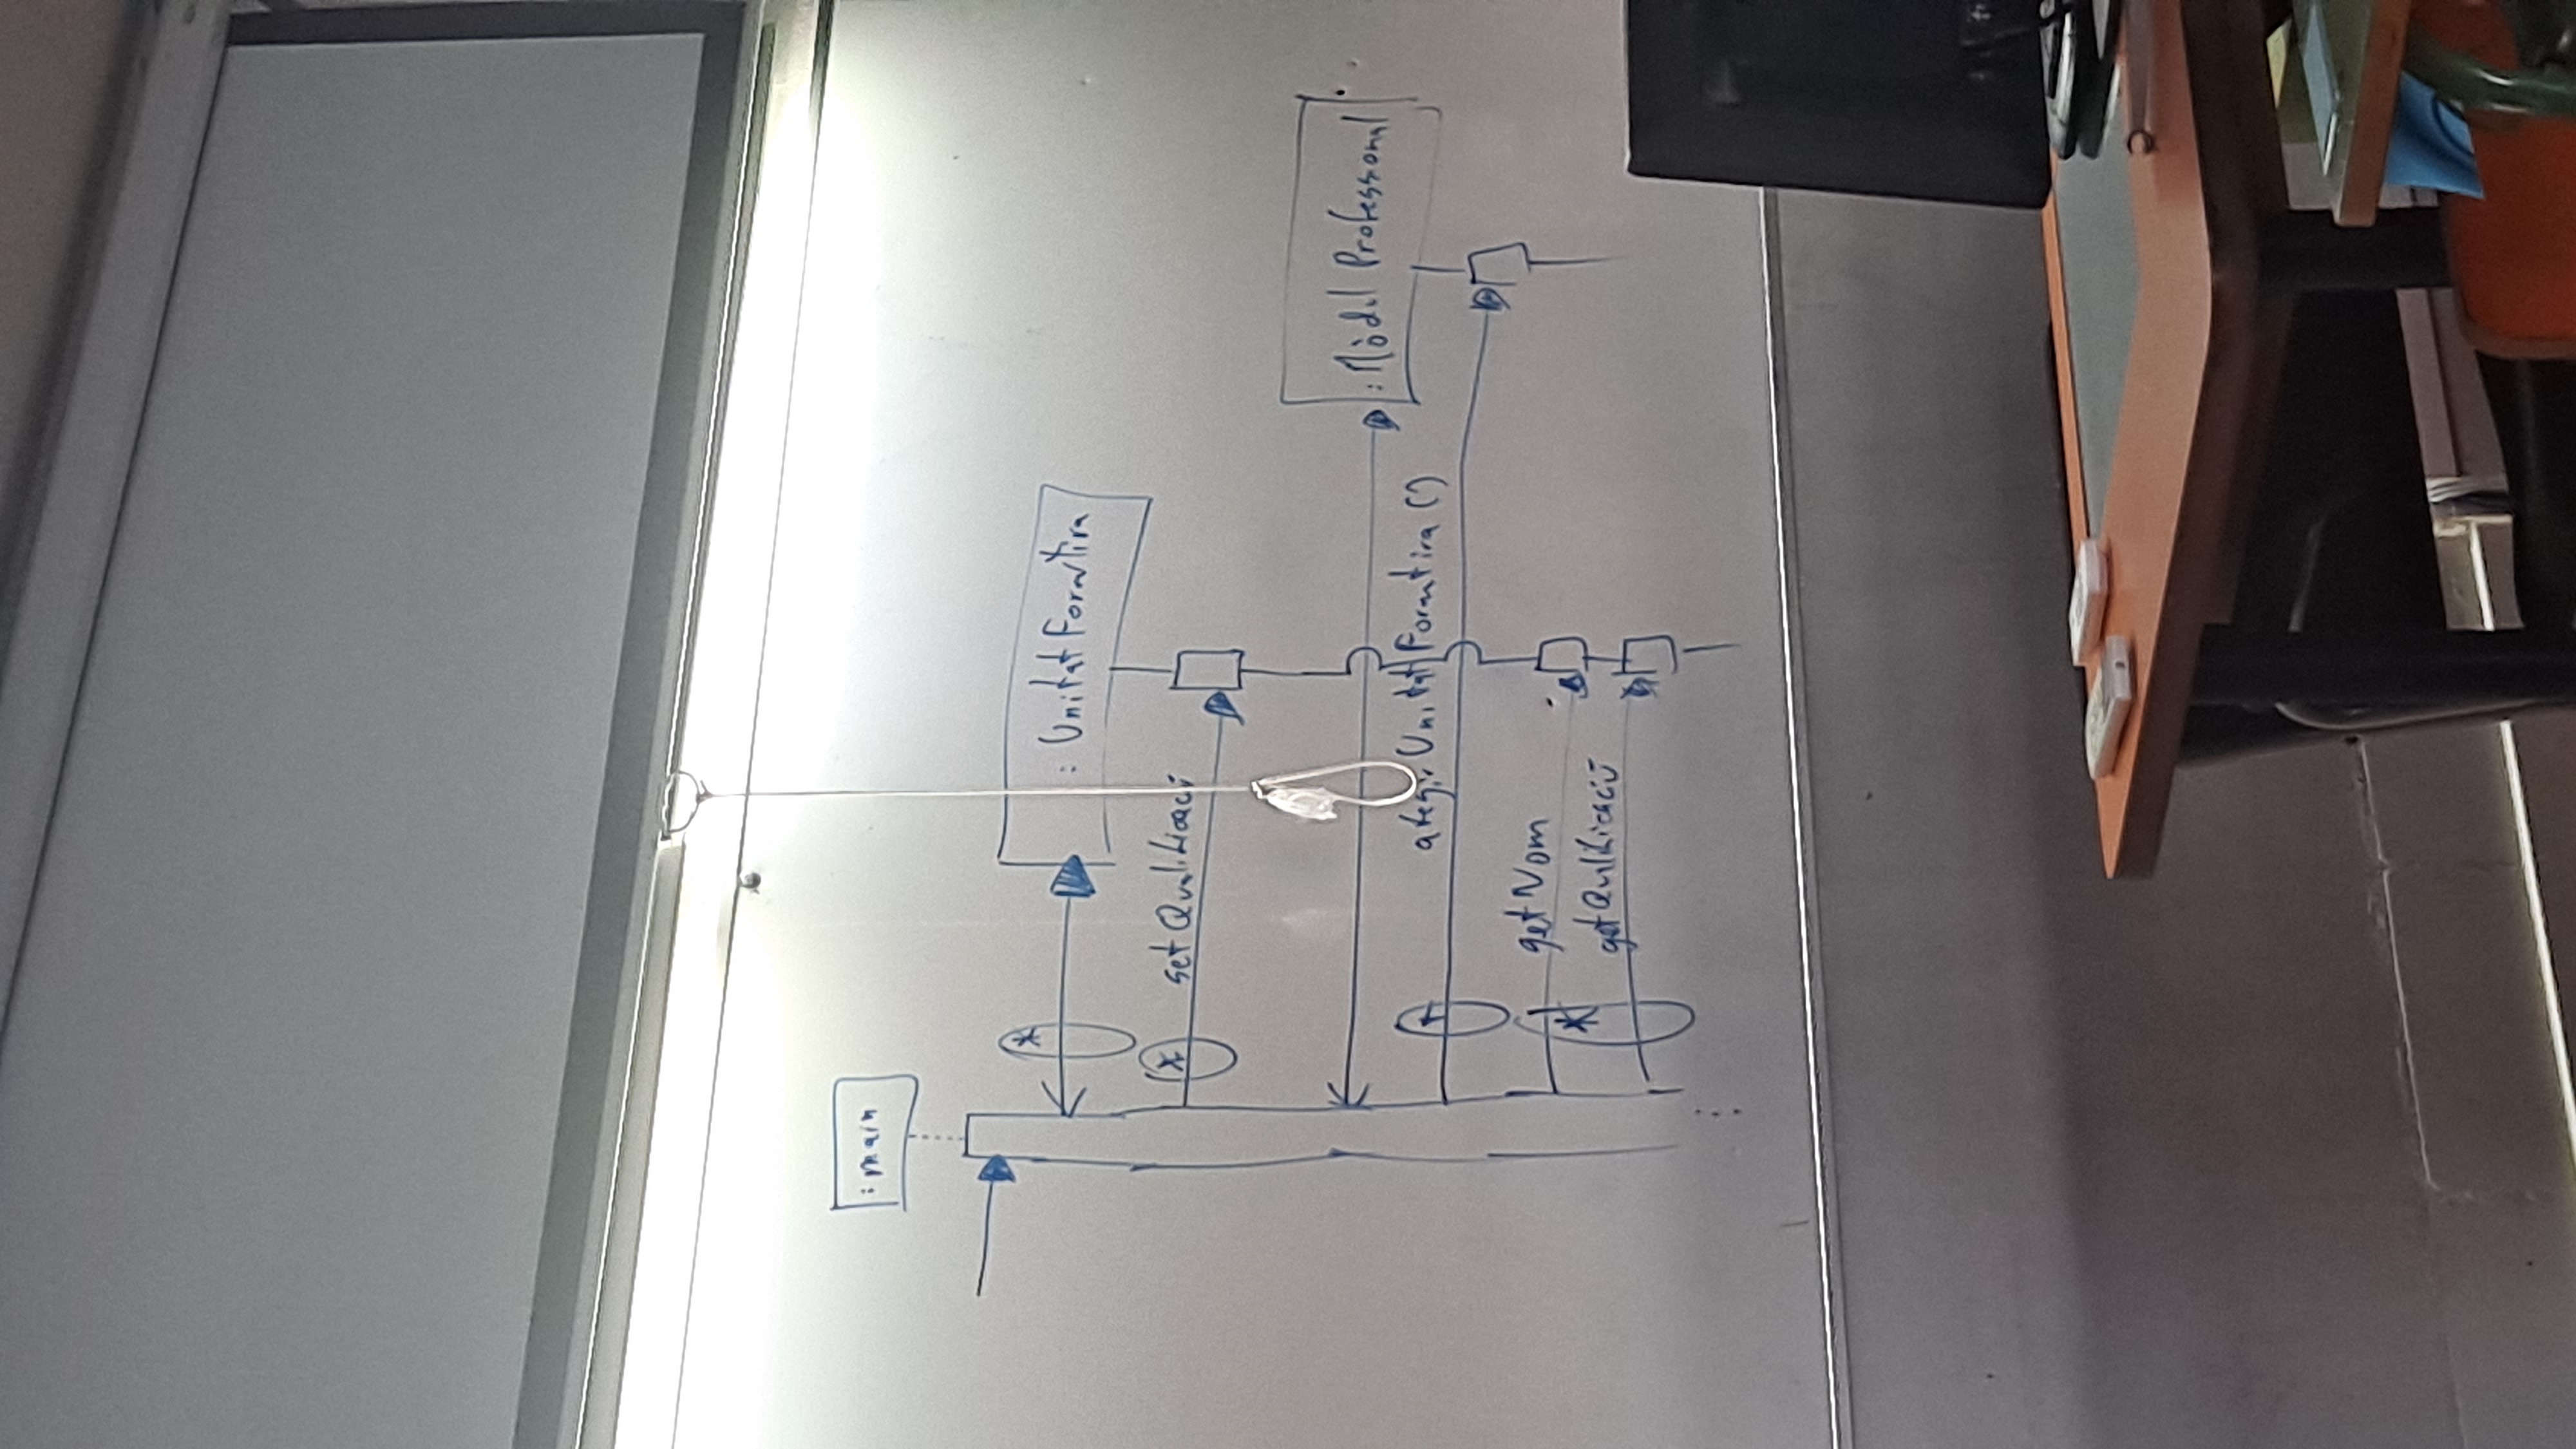 : main
*
: Unitat Formativa
*
setQualificació
: Mòdul Professional
afegir Unitat Formativa ()
*
getNom
*
getQualificació